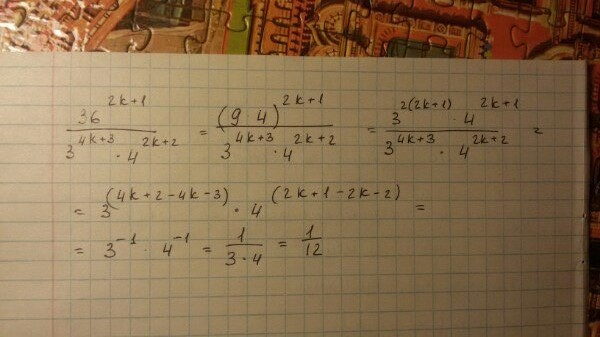 36^(2k+1) / (3^(4k+3) · 4^(2k+2)) = (9 4)^(2k+1) / (3^(4k+3) · 4^(2k+2)) = (3^(2(2k+1)) · 4^(2k+1)) / (3^(4k+3) · 4^(2k+2)) =
= 3^(4k+2-4k-3) · 4^(2k+1-2k-2) =
= 3^(-1) · 4^(-1) = 1/(3·4) = 1/12